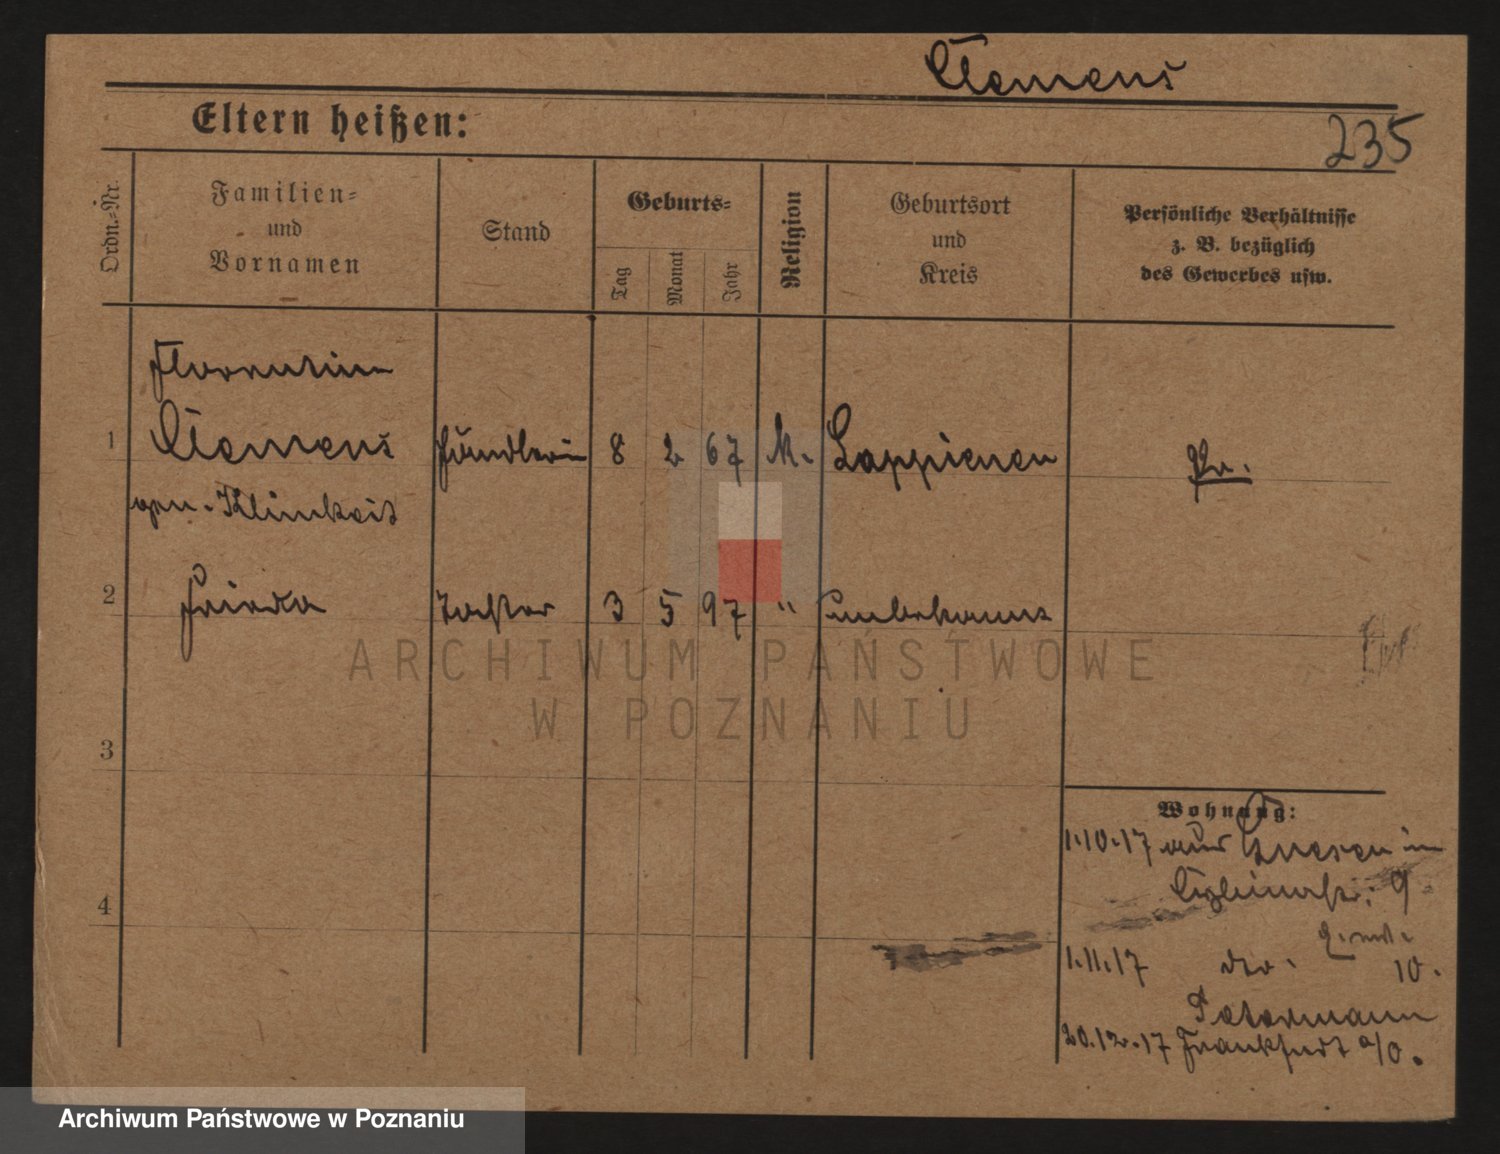 Clemens
Eltern heißen:
235
Ordn.=Nr.
Familien=
und
Vornamen
Stand
Geburts=
Tag
Monat
Jahr
Religion
Geburtsort
und
Kreis
Persönliche Verhältnisse
z. B. bezüglich
des Gewerbes usw.
Florentine
1 Clemens Händlerin 8 2 67 Lappienen Pr.
Klimkeit
2 Frieda Tochter 3 5 97 " unbekannt
3
4
Wohnung:
1.10.17 aus Gnesen in
9
1.11.17 10.
Petermann
20.12.17 Frankfurt a/O.
ARCHIWUM PAŃSTWOWE
W POZNANIU
Archiwum Państwowe w Poznaniu